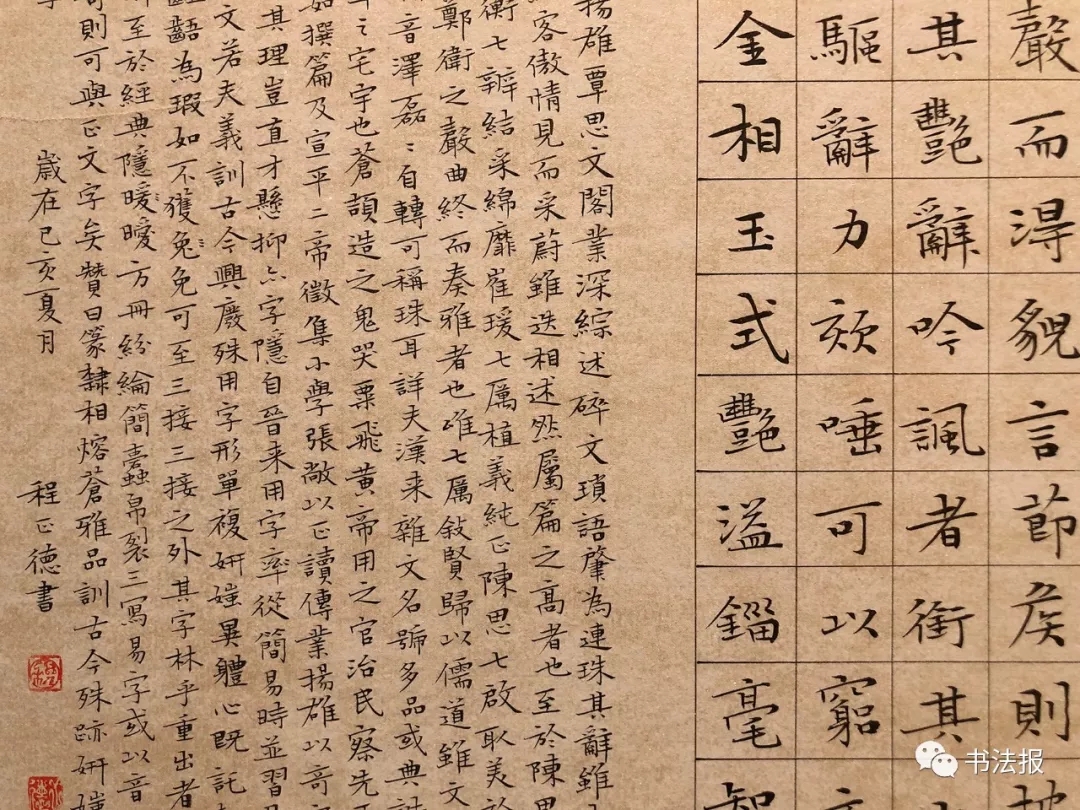 嚴而得貌言節矦則
其豔辭吟諷者銜其
驅辭力欬唾可以窮
金相玉式豔溢錙毫
揚雄覃思文閣業深綜述碎文瑣語肇為連珠其辭雖
客傲情見而采蔚雖迭相述然屬篇之高者也至於陳思
衡七辨結采綿靡崔瑗七厲植義純正陳思七啟取美於
鄭衛之聲曲終而奏雅者也唯七厲敍賢歸以儒道雖文
音澤磊磊自轉可稱珠耳詳夫漢来雜文名號多品或典
之宅宇也蒼頡造之鬼哭粟飛黃帝用之官治民察先
如撰篇及宣平二帝徵集小學張敞以正讀傳業揚雄以奇
其理豈直才懸抑亦字隱自晉来用字率從簡易時並習
文若夫義訓古今興廢殊用字形單複妍媸異體心既託
齬為瑕如不獲免免可至三接三接之外其字林乎重出者
至於經典隱曖方冊紛綸簡蠹帛裂三寫易字或以音
則可與正文字矣贊曰篆隸相熔蒼雅品訓古今殊跡妍媸
歲在己亥夏月 程正德書
书法报